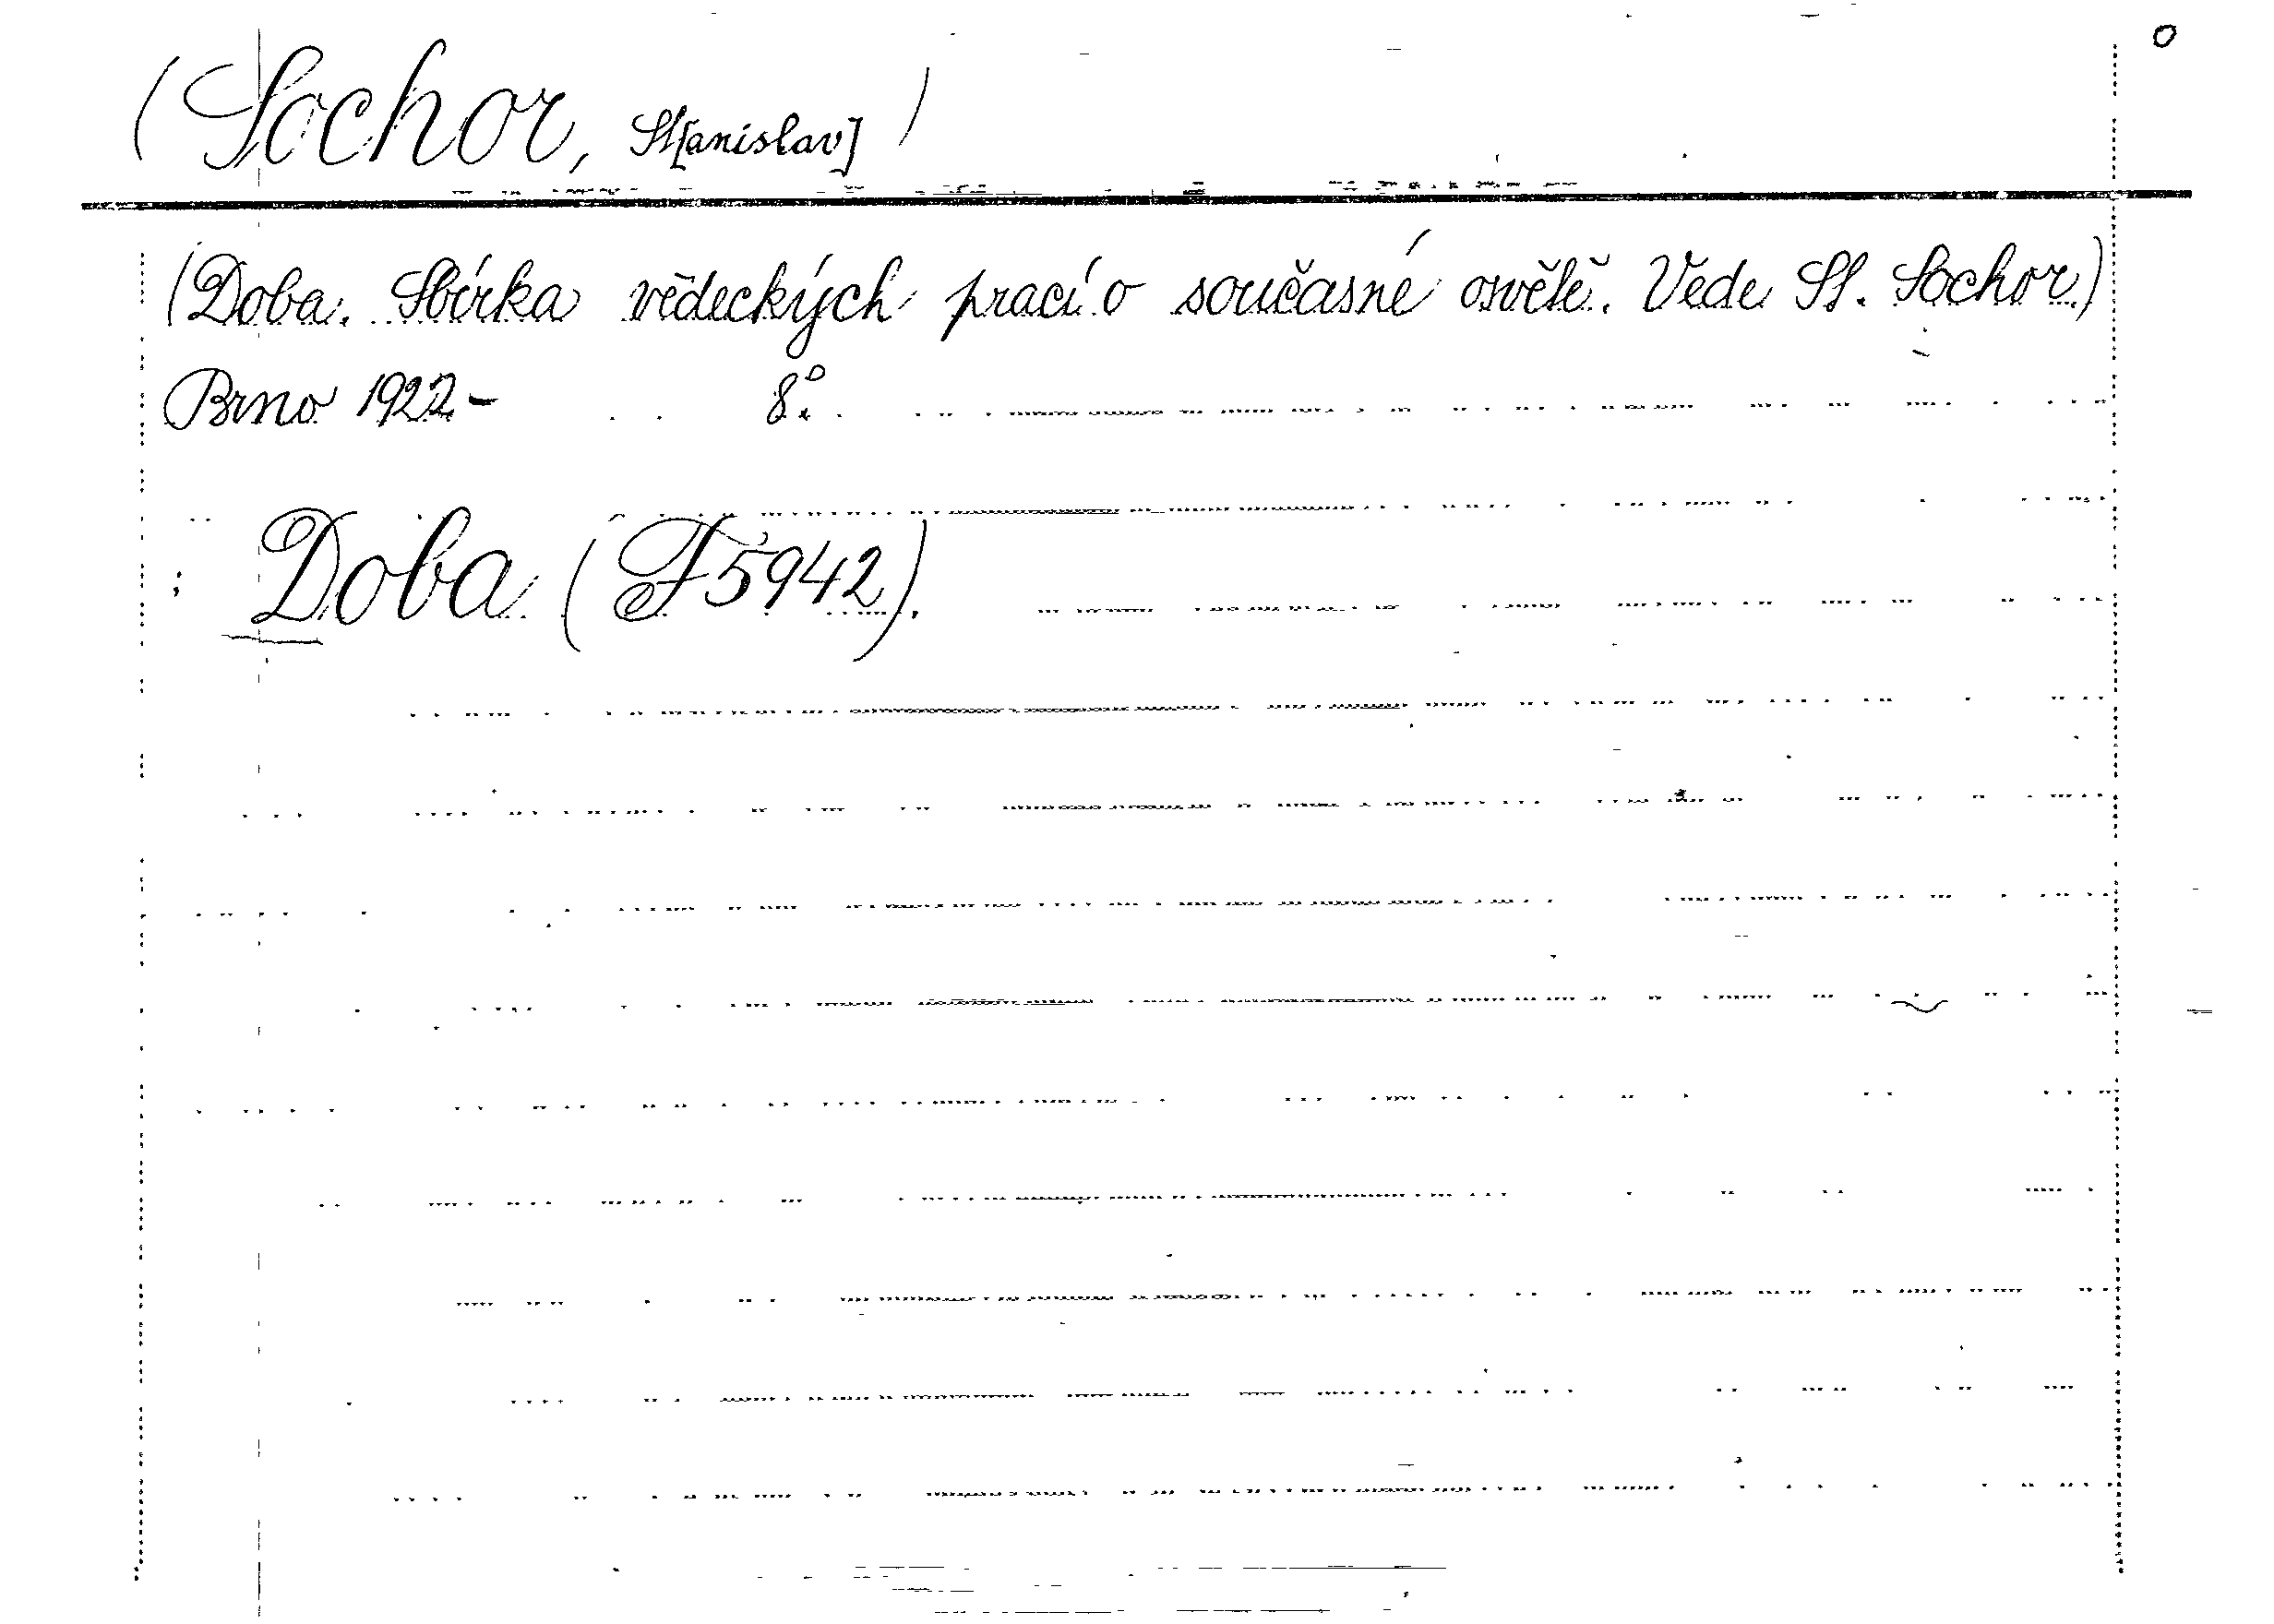 o
(Sochor, St[anislav])
(Doba. Sbírka vědeckých prací o současné osvětě. Vede St. Sochor.)
Brno 1922- 8°.
Doba (F 5942).